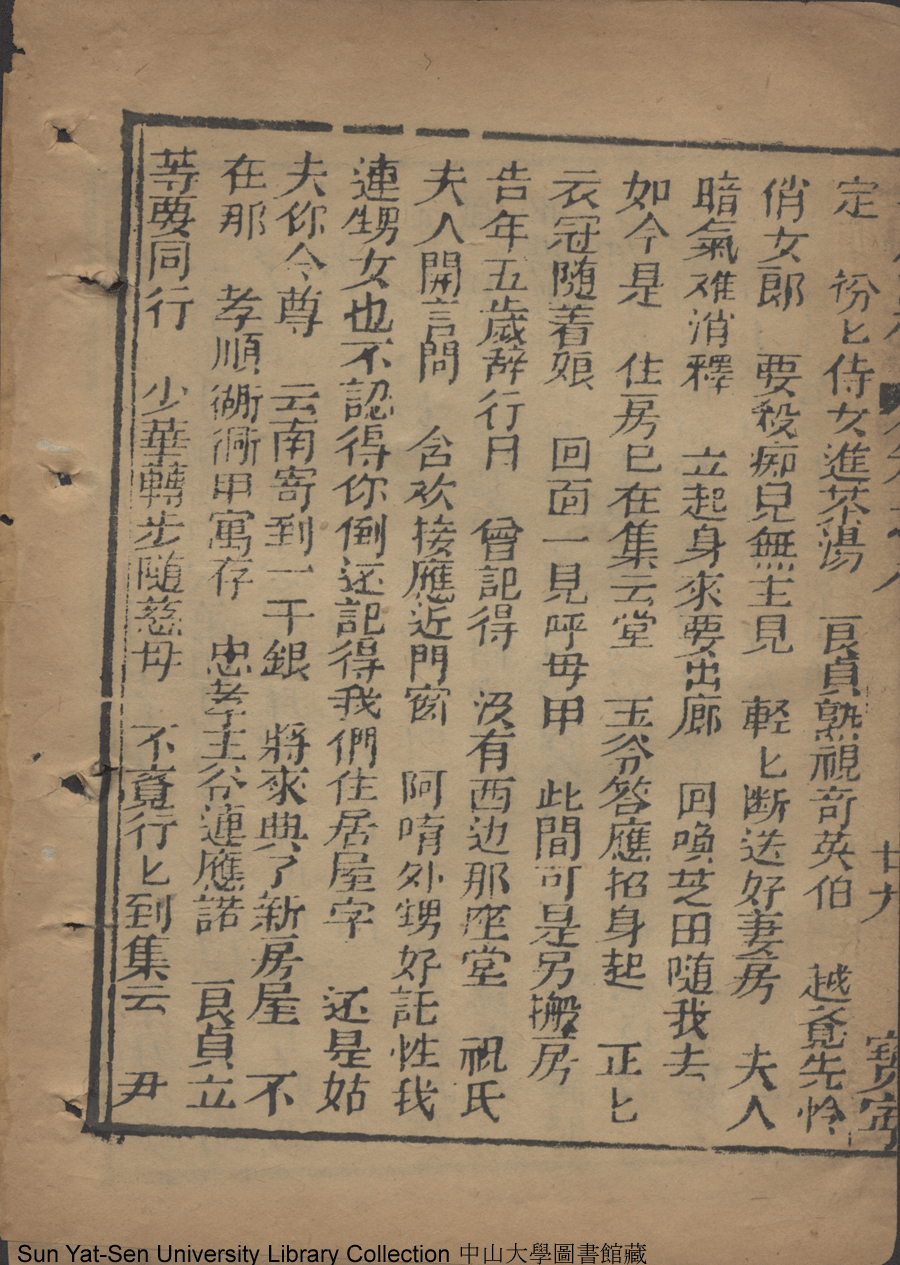 廿九
寳寕
定 扮匕侍女進茶湯 良貞熟視奇英伯 越覔先怜
俏女郎 要殺痴見無主見 軽匕断送好妻房 夫人
暗氣难消釋 立起身來要出廊 回喚芝田随我去
如今是 住房已在集云堂 玉爷答應招身起 正匕
衣冠随着娘 回面一見呼毋甲 此間可是另搬房
告年五歲辞行日 曾記得 没有西边那座堂 祝氏
夫人開言問 含欢接應近門窗 阿唷外甥好記性我
連甥女也不認得你倒还記得我們住居屋字 还是姑
夫你令尊 云南寄到一千銀 將來典了新房屋 不
在那 孝順衚衕甲寓存 忠孝主爷連應諾 良貞立
䓁要同行 少華轉步随慈毋 不覔行匕到集云 尹
Sun Yat-Sen University Library Collection 中山大學圖書館藏